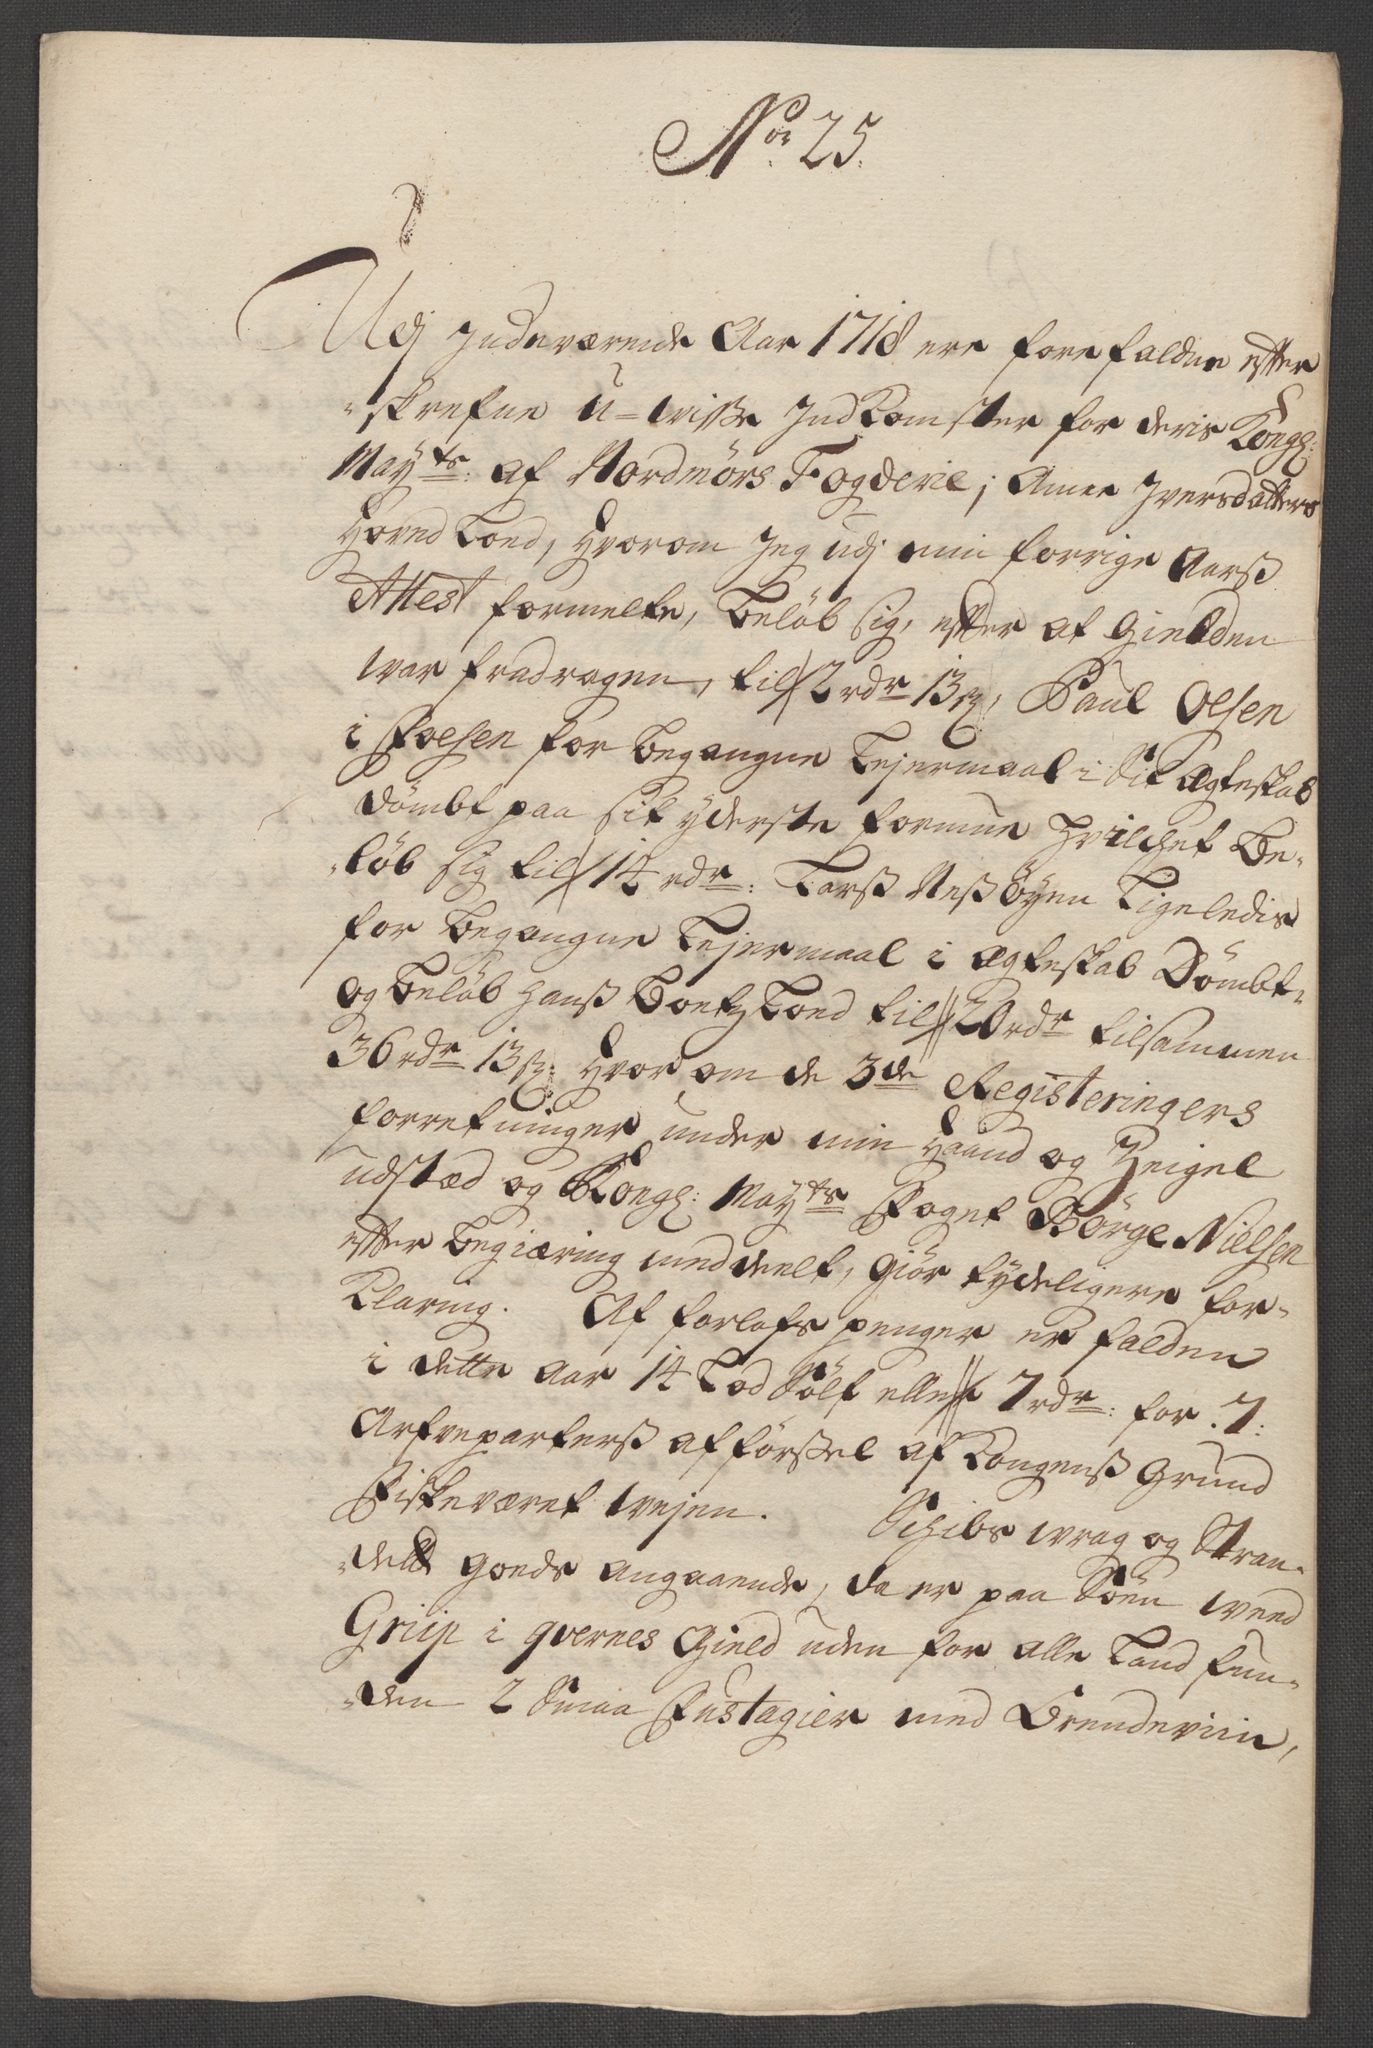 No: 25.
Udj Indeværende Aar 1718 ere forefaldne efter
-skrefne U-wisse Indkomster for deris Kongl:
Mayts: af Nordmörs Fogderie; Anne Iversdatters
Hovedlod, hvorom Jeg udj min forrige Aarß
Attest formelte, beløb sig, efter af Gielden
war fradragen, til 2 rdr 13 ß, Paul Olsen
i Foesen for begangne Lejermaal i Sit Ægteskab
dömbt paa sit yderste formue hvilchet be-
-löb sig til 14 rdr: Larß Neßöyen Ligeledis
for begangne Lejermaal i Ægteskab Dömbt-
og beløb hanß Boetzlod til 20 rdr tilsammen
36 rdr 13 ß: hvor om de 3de Registerings
forretninger under min Haand og Zeigel
udstæd og Kongl: Mayts Foget Börge Nielsen
efter begiæring meddeelt, giör tydeligere for-
klaring. Af forlofs penger er falden
i dette Aar 14 Lod Sölf eller 7 rdr: for .7.
Arfveparterß afförßel af Kongenß Grund
Fiskeværet wejen. Schibs wrag og Stran-
-det Goeds angaaende, da er paa Söen weed
Griip i qvernes Gield uden for alle Land fun-
-den 2 Smaa Fustagier med Brendeviin,